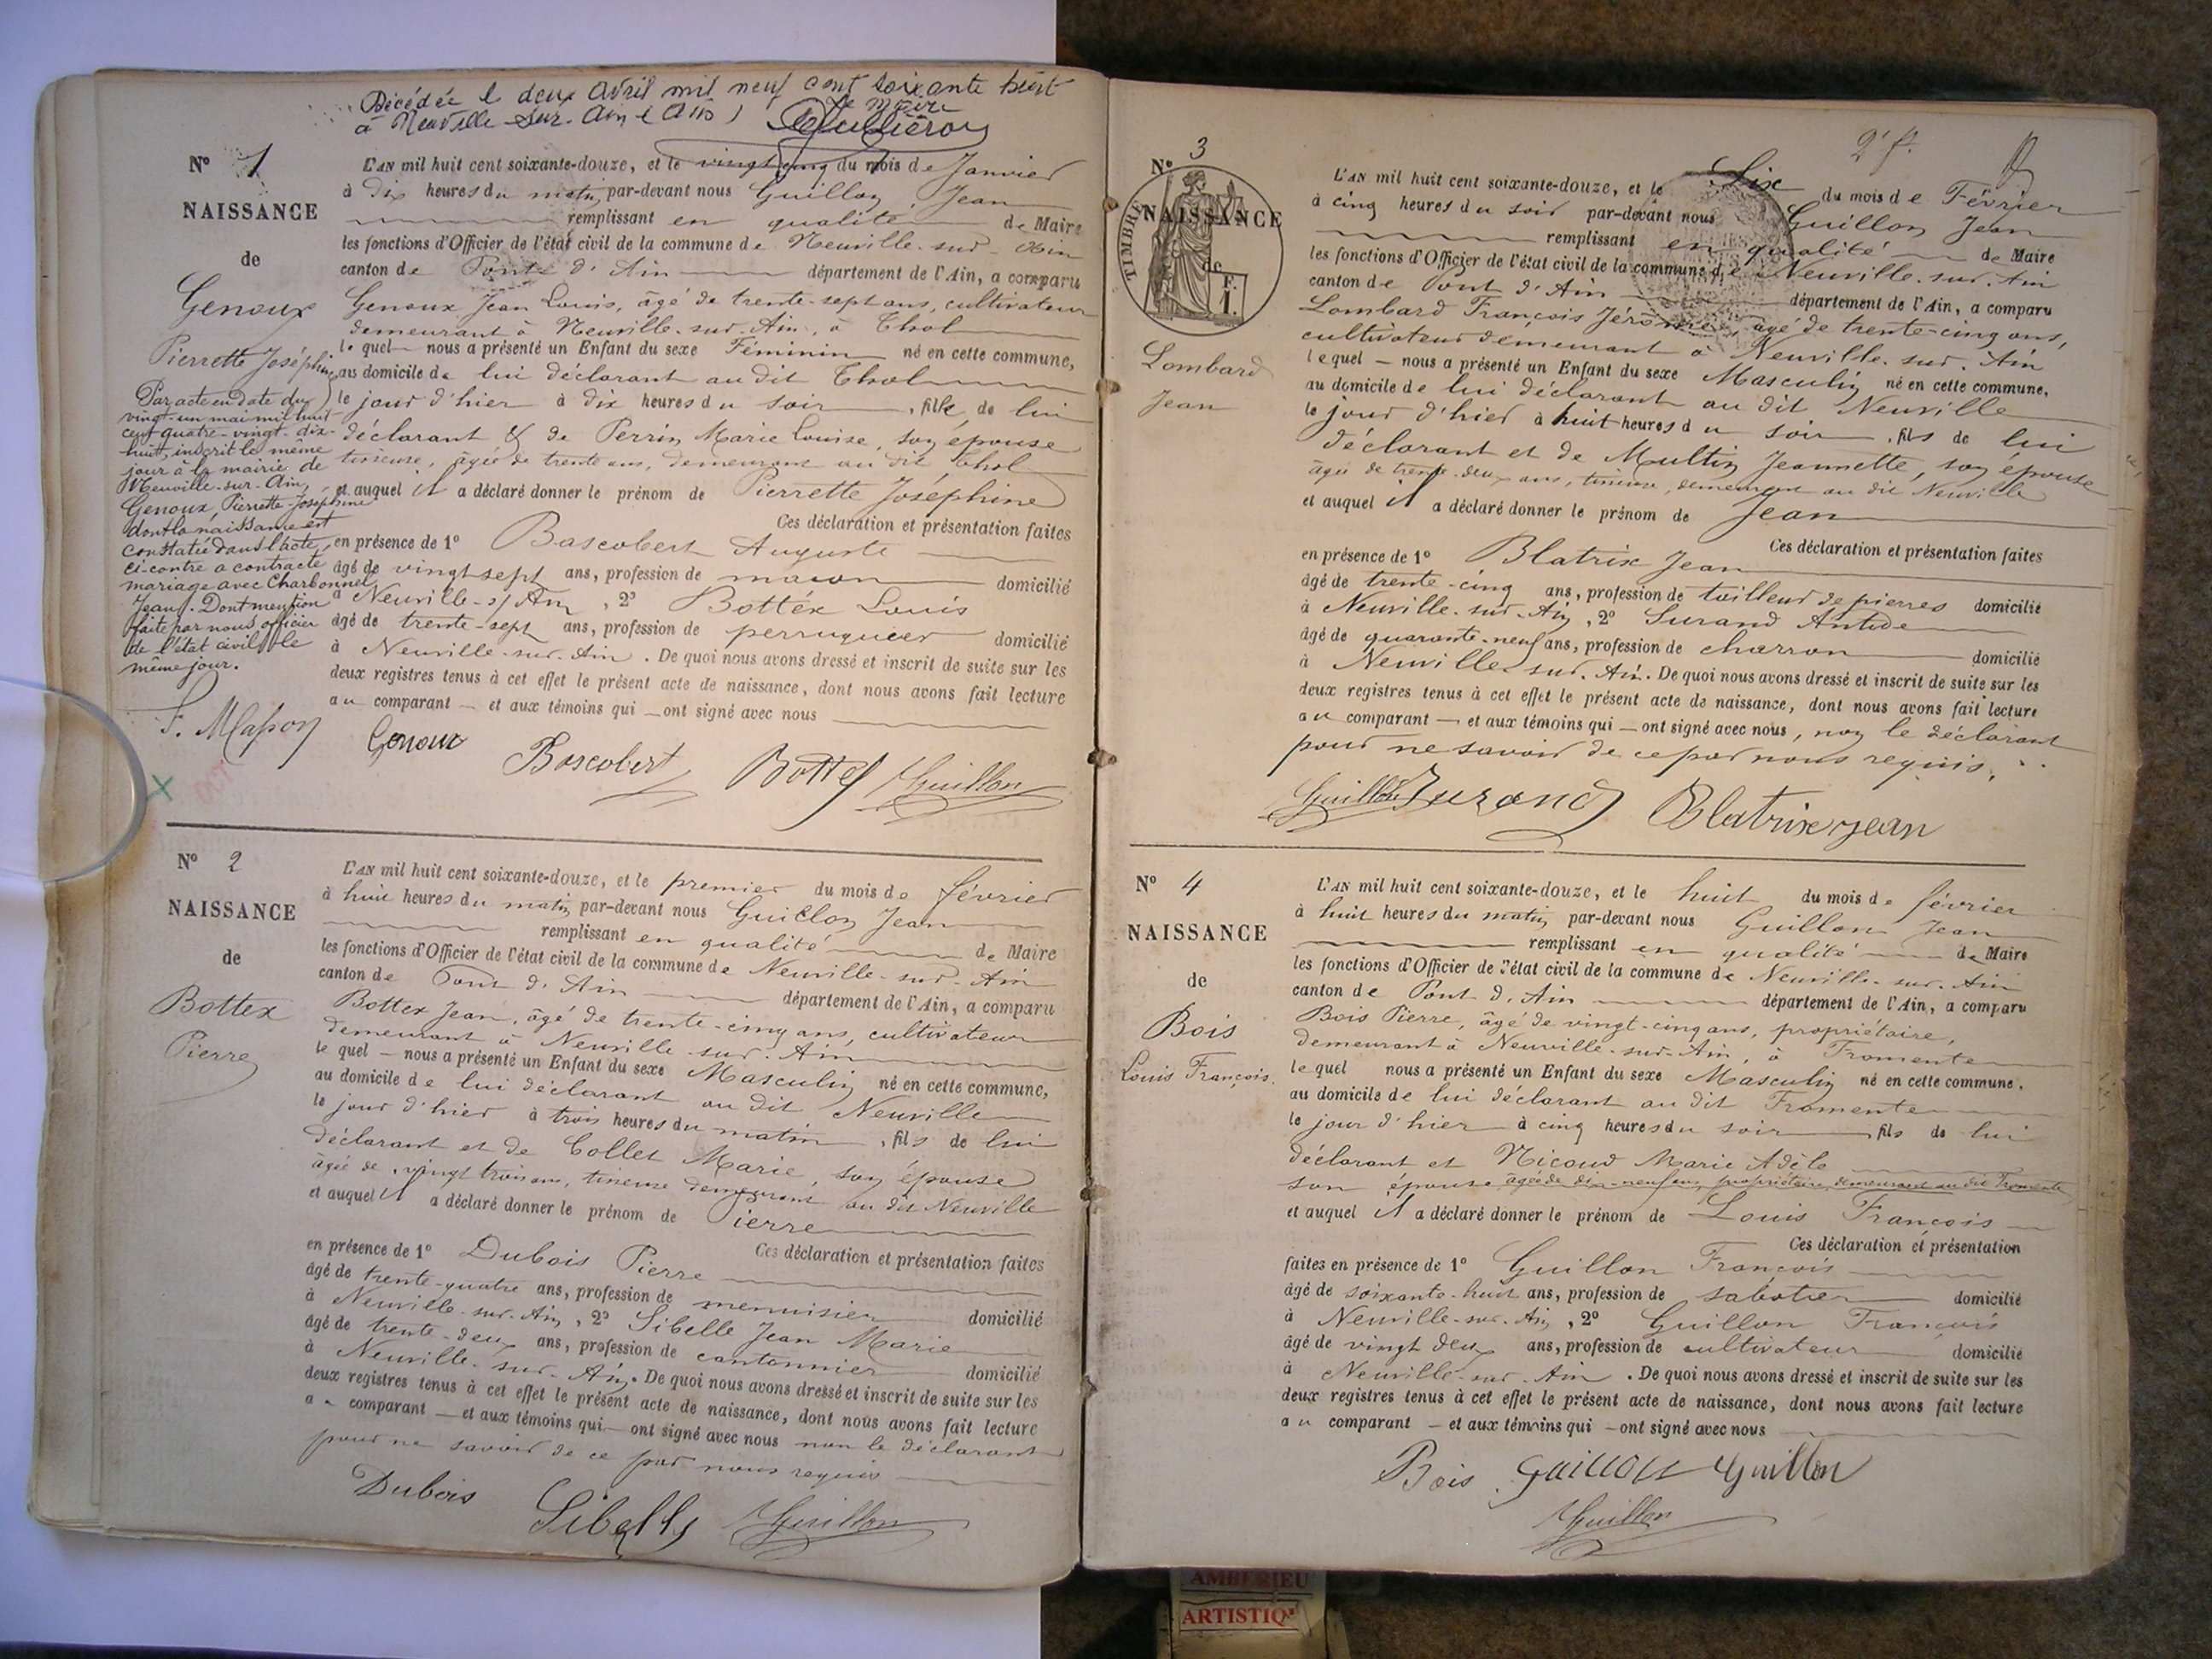 Décédée le deux avril mil neuf cent soixante huit
à Neuville-sur-Ain (Ain) le maire
N° 1
NAISSANCE
de
Genoux
Pierrette Joséphine
Par acte en date du
vingt-un mai mil huit
cent quatre-vingt-dix-
huit, inscrit le même
jour à la mairie de
Neuville-sur-Ain,
Genoux, Pierrette-Joséphine
dont la naissance est
constatée dans l'acte
ci-contre a contracté
mariage avec Charbonnel
Jean. Dont mention
faite par nous officier
de l'état civil le
même jour.
L'AN mil huit cent soixante-douze, et le vingt cinq du mois de Janvier
à dix heures du matin, par-devant nous Guillon Jean
remplissant en qualité de Maire
les fonctions d'Officier de l'état civil de la commune de Neuville-sur-Ain
canton de Pont d'Ain département de l'Ain, a comparu
Genoux Jean Louis, âgé de trente-sept ans, cultivateur
demeurant à Neuville-sur-Ain, à Thol
lequel nous a présenté un Enfant du sexe Féminin né en cette commune,
au domicile de lui déclarant au dit Thol
le jour d'hier à dix heures du soir, fille de lui
déclarant & de Perrin Marie Louise, son épouse
tisseuse, âgée de trente ans, demeurant au dit Thol
et auquel il a déclaré donner le prénom de Pierrette Joséphine
Ces déclaration et présentation faites
en présence de 1° Bascobert Auguste
âgé de vingt sept ans, profession de maçon domicilié
à Neuville-s/Ain, 2° Bottex Louis
âgé de trente-sept ans, profession de perruquier domicilié
à Neuville-sur-Ain. De quoi nous avons dressé et inscrit de suite sur les
deux registres tenus à cet effet le présent acte de naissance, dont nous avons fait lecture
au comparant et aux témoins qui ont signé avec nous
Genoux Bascobert Bottex Guillon
N° 2
NAISSANCE
de
Bottex
Pierre
L'AN mil huit cent soixante-douze, et le premier du mois de février
à huit heures du matin par-devant nous Guillon Jean
remplissant en qualité de Maire
les fonctions d'Officier de l'état civil de la commune de Neuville-sur-Ain
canton de Pont d'Ain département de l'Ain, a comparu
Bottex Jean, âgé de trente-cinq ans, cultivateur
demeurant à Neuville-sur-Ain
lequel nous a présenté un Enfant du sexe Masculin né en cette commune,
au domicile de lui déclarant au dit Neuville
le jour d'hier à trois heures du matin, fils de lui
déclarant et de Collet Marie, son épouse
âgée de vingt trois ans, demeurant au dit Neuville
et auquel il a déclaré donner le prénom de Pierre
Ces déclaration et présentation faites
en présence de 1° Dubois Pierre
âgé de trente-quatre ans, profession de menuisier domicilié
à Neuville-sur-Ain, 2° Sibelle Jean Marie
âgé de trente-deux ans, profession de cantonnier domicilié
à Neuville-sur-Ain. De quoi nous avons dressé et inscrit de suite sur les
deux registres tenus à cet effet le présent acte de naissance, dont nous avons fait lecture
au comparant et aux témoins qui ont signé avec nous non le déclarant
pour ne savoir de ce par nous requis
Dubois Sibelle Guillon
2e ft.
N° 3
NAISSANCE
de
TIMBRE
F.
1.
Lombard
Jean
L'AN mil huit cent soixante-douze, et le Six du mois de Février
à cinq heures du soir par-devant nous Guillon Jean
remplissant en qualité de Maire
les fonctions d'Officier de l'état civil de la commune de Neuville-sur-Ain
canton de Pont d'Ain département de l'Ain, a comparu
Lombard François Jérôme, âgé de trente-cinq ans,
cultivateur demeurant à Neuville-sur-Ain
lequel nous a présenté un Enfant du sexe Masculin né en cette commune,
au domicile de lui déclarant au dit Neuville
le jour d'hier à huit heures du soir, fils de lui
déclarant et de Multin Jeannette, son épouse
âgée de trente-deux ans, tisseuse, demeurant au dit Neuville
et auquel il a déclaré donner le prénom de Jean
Ces déclaration et présentation faites
en présence de 1° Blatrix Jean
âgé de trente-cinq ans, profession de tailleur de pierres domicilié
à Neuville-sur-Ain, 2° Durand Antide
âgé de quarante-neuf ans, profession de charron domicilié
à Neuville-sur-Ain. De quoi nous avons dressé et inscrit de suite sur les
deux registres tenus à cet effet le présent acte de naissance, dont nous avons fait lecture
au comparant et aux témoins qui ont signé avec nous, non le déclarant
pour ne savoir de ce par nous requis.
Guillon Durand Blatrix jean
N° 4
NAISSANCE
de
Bois
Louis François.
L'AN mil huit cent soixante-douze, et le huit du mois de février
à huit heures du matin par-devant nous Guillon Jean
remplissant en qualité de Maire
les fonctions d'Officier de l'état civil de la commune de Neuville-sur-Ain
canton de Pont d'Ain département de l'Ain, a comparu
Bois Pierre, âgé de vingt-cinq ans, propriétaire,
demeurant à Neuville-sur-Ain, à Fromente
lequel nous a présenté un Enfant du sexe Masculin né en cette commune,
au domicile de lui déclarant au dit Fromente
le jour d'hier à cinq heures du soir fils de lui
déclarant et Nicoud Marie Adèle
son épouse âgée de dix-neuf ans, propriétaire, demeurant au dit Fromente
et auquel il a déclaré donner le prénom de Louis François
Ces déclaration et présentation
faites en présence de 1° Guillon François
âgé de soixante-huit ans, profession de sabotier domicilié
à Neuville-sur-Ain, 2° Guillon François
âgé de vingt deux ans, profession de cultivateur domicilié
à Neuville-sur-Ain. De quoi nous avons dressé et inscrit de suite sur les
deux registres tenus à cet effet le présent acte de naissance, dont nous avons fait lecture
au comparant et aux témoins qui ont signé avec nous
Bois Guillon Guillon
Guillon
AMBERIEU
ARTISTIQ